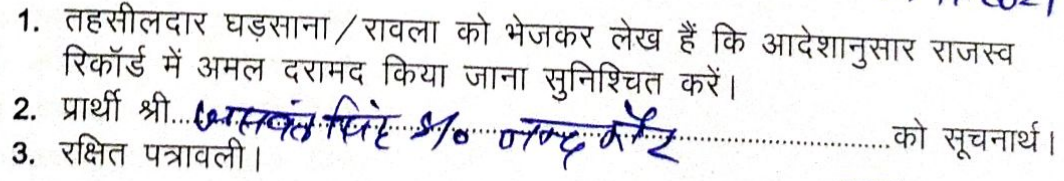 1. तहसीलदार घड़साना / रावला को भेजकर लेख हैं कि आदेशानुसार राजस्व
रिकॉर्ड में अमल दरामद किया जाना सुनिश्चित करें।
2. प्रार्थी श्री...जसवंत सिंह S/o ...............को सूचनार्थ।
3. रक्षित पत्रावली।